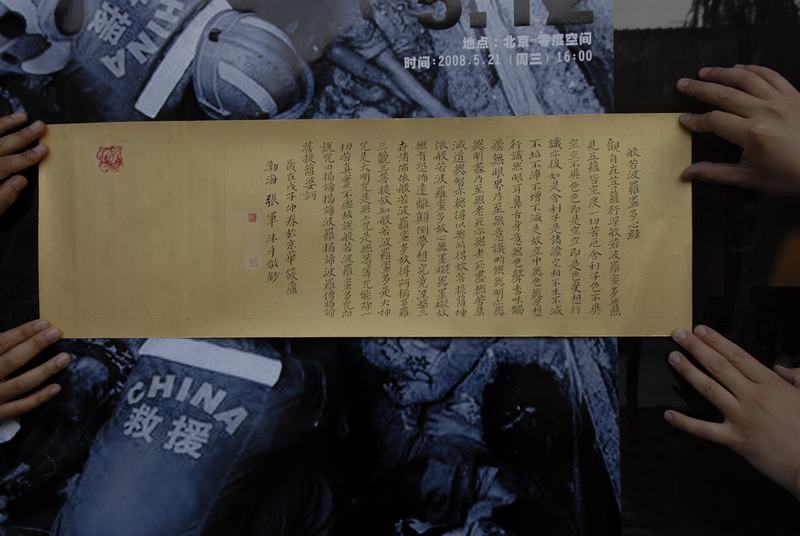 5.12
地点：北京-零度空间
时间：2008.5.21（周三）16:00
CHINA
般若波羅蜜多心經
觀自在菩薩行深般若波羅蜜多時照
見五蘊皆空度一切苦厄舍利子色不異
空空不異色色即是空空即是色受想行
識亦復如是舍利子是諸法空相不生不滅
不垢不淨不增不減是故空中無色無受想
行識無眼耳鼻舌身意無色聲香味觸
法無眼界乃至無意識界無無明亦無
無明盡乃至無老死亦無老死盡無苦集
滅道無智亦無得以無所得故菩提薩埵
依般若波羅蜜多故心無罣礙無罣礙故
無有恐怖遠離顛倒夢想究竟涅槃三
世諸佛依般若波羅蜜多故得阿耨多羅
三藐三菩提故知般若波羅蜜多是大神
咒是大明咒是無上咒是無等等咒能除一
切苦真實不虛故說般若波羅蜜多咒即
說咒曰揭諦揭諦波羅揭諦波羅僧揭諦
菩提薩婆訶
歲在戊子仲春於京華筱廬
渤海 張軍 沐手敬鈔
CHINA
救援